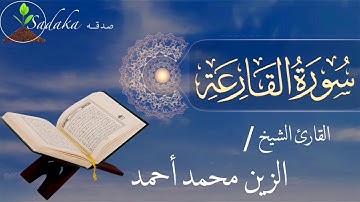 Sadaka صدقه
سُورَةُ القَارِعَةِ
القارئ الشيخ /
الزين محمد أحمد